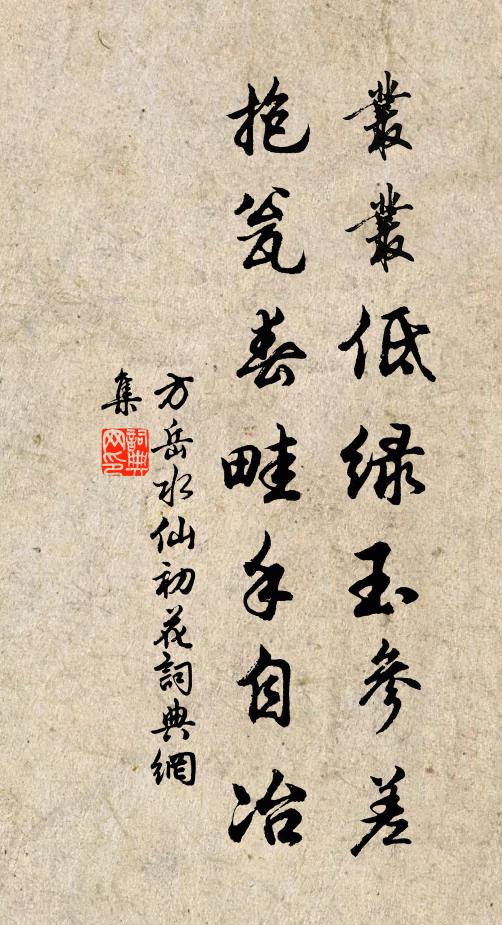 叢叢低緑玉參差
抱瓮春畦手自冶
方岳水仙初花詞典網
集
詞典网印